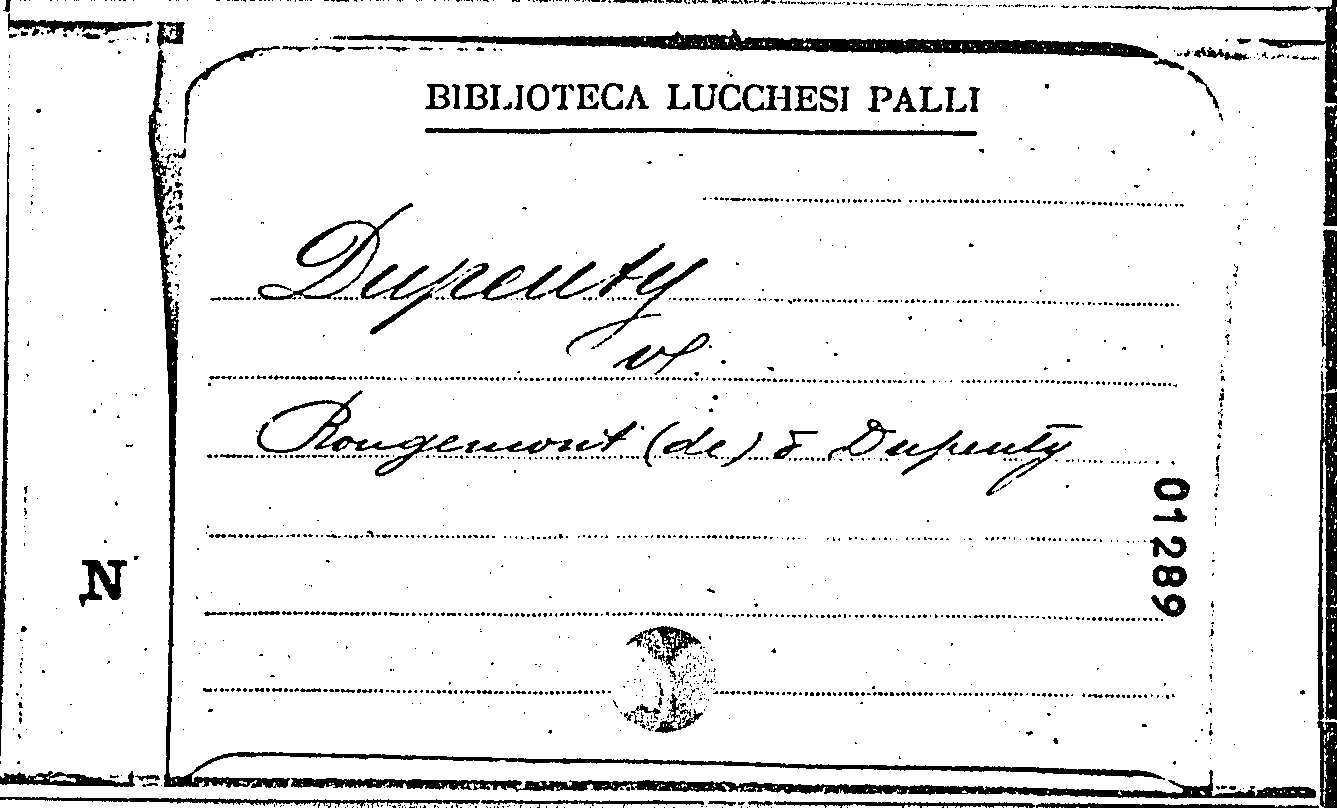 BIBLIOTECA LUCCHESI PALLI
Dupeuty
v.
Rougemont (de) e Dupeuty
01289
N